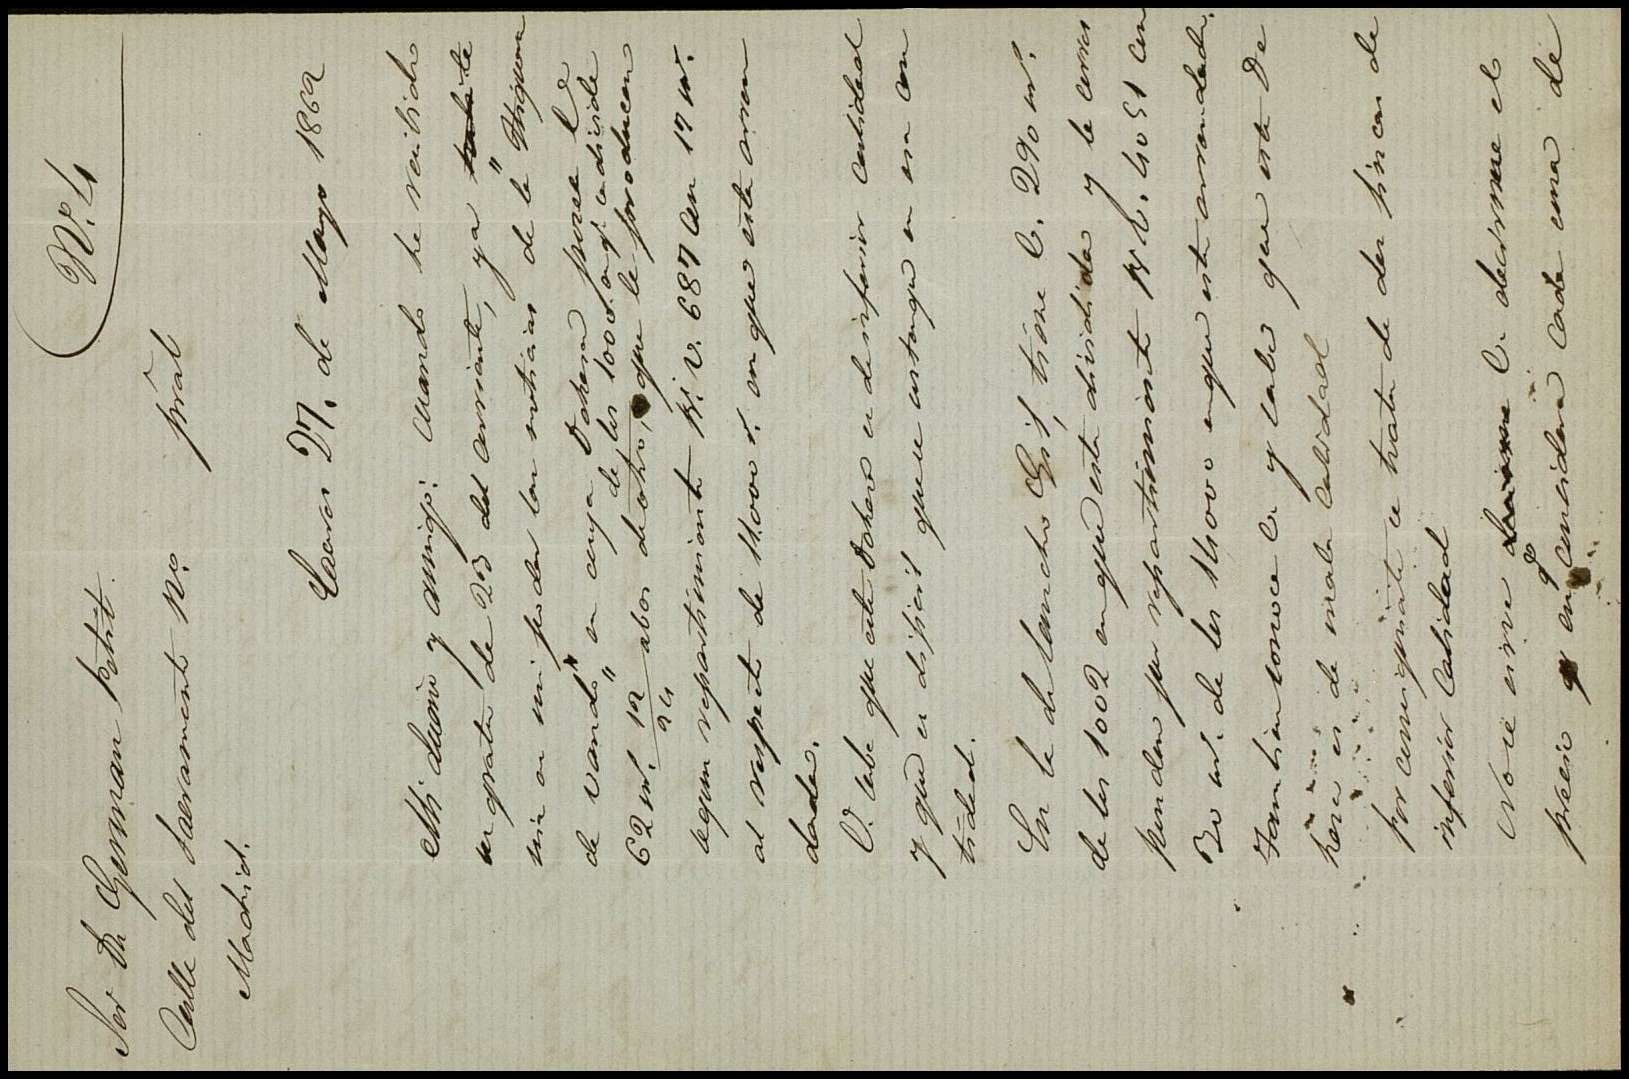 Nº. 4
Sor Dn German Petit
Calle del Sacramento Nº. pral
Madrid.
27. de Mayo 1862
Mi dueño y amigo: cuando he recibido
su grata de 23 del corriente, ya
mia en mi poder las noticias de la "Higuera
de Vando" en cuya Dehesa posee V
62 mrs. 12/24 abos de otro, de los 1008. en qe. se divide que le producen
segun repartimiento Rs. v. 687 con 17 mrs.
al respecto de 11.000 r. en que está arren
dada.
V. sabe que esta Dehesa es de inferior calidad
y que es dificil que se
tidad.
En la de Gil, tiene V. 290 mrs.
de los 1002 en que está dividida y le corres
ponden por repartimiento Rs. v. 4051 con
30 mrs. de los 14000 en que está arrendada.
Tambien conoce V. y sabe que esta De
hesa es de mala calidad
por consiguiente se trata de dos fincas de
inferior calidad
V. decirme el
precio en qe. considera cada una de